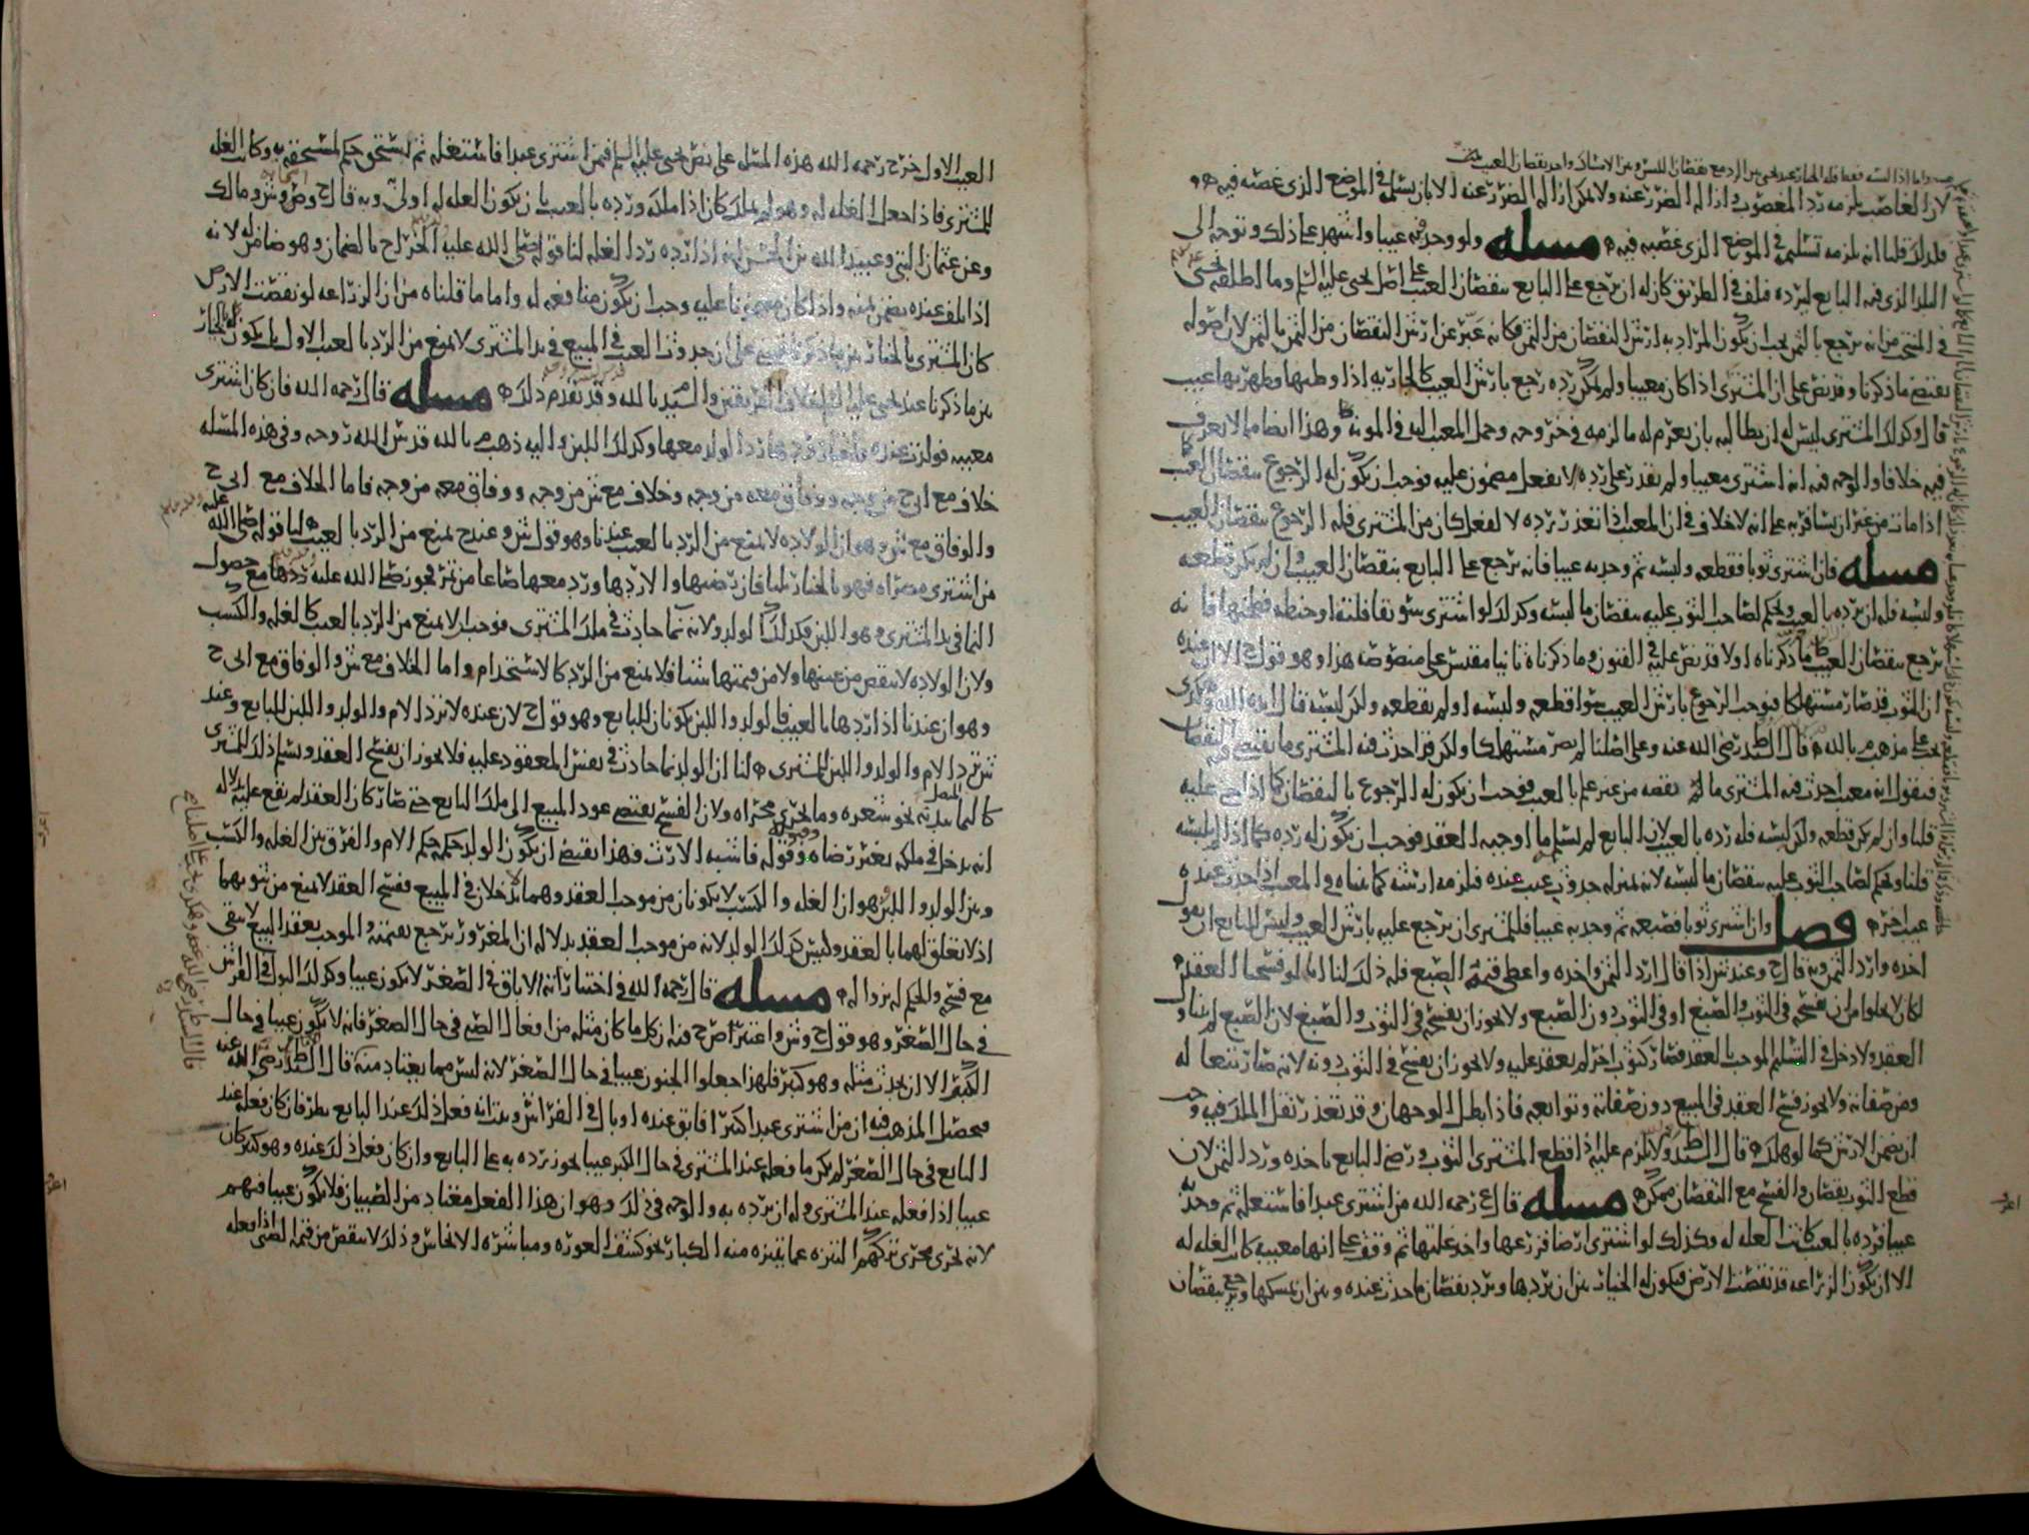 لان الغاصب يلزمه رد المغصوب وازاله الضرر عنه ولا يمكن ازاله الضرر عنه الا بان يسلمه في الموضع الذي غصبه فيه
فلذلك قلنا انه يلزمه تسليمه في الموضع الذي غصبه فيه مسله ولو وجد فيه عيبا واشهد على ذلك وتوجه الى
البلد الذي فيه البايع ليرده فتلف في الطريق كان له ان يرجع على البايع بنقصان العيب على اصل يحيى عليه السلم وما اطلقه يحيى
في المنتخب من انه يرجع بالثمن يجب ان يكون المراد به ارش النقصان من الثمن فكانه عبر عن ارش النقصان من الثمن بالثمن لان اصوله
تقتضي ما ذكرنا وقد نص على ان المشتري اذا كان معيبا ولم يمكن رده رجع بارش العيب كالجاريه اذا وطيها وظهر بها عيب
قال وكذلك المشتري ليس له ان يطالبه بان يغرم له ما لزمه في خروجه وحمل المعيب اليه في المونه وهذا ايضا مما لا نعرف
فيه خلافا والوجه فيه انه اشترى معيبا ولم يقدر على رده لا بفعل مضمون عليه فوجب ان يكون له الرجوع بنقصان العيب
اذا مات من غير ان يسافر به على انه لا خلاف في ان المعيب اذا تعذر رده لا لفعل كان من المشتري فله الرجوع بنقصان العيب
مسله فان اشترى ثوبا فقطعه ولبسه ثم وجد به عيبا فانه يرجع على البايع بنقصان العيب وان لم يكن قطعه
ولبسه فله ان يرده بالعيب ويحكم لصاحب الثوب عليه بنقصان ما لبسه وكذلك لو اشترى سويقا فلته او حنطه فطحنها فانه
يرجع بنقصان العيب ما ذكرناه اولا قد نص عليه في الفنون وما ذكرناه ثانيا مقيس على منصوصه هذا وهو قول ح الا ان عنده
ان الثوب قد صار مستهلكا فيوجب الرجوع بارش العيب سوا قطعه ولبسه او لم يقطعه ولكن لبسه قال ايده الله
على مذهب بالله قال السيد ط رضي الله عنه وعلى اصلنا لم يصر مستهلكا ولكن قد احدث فيه المشتري ما يقتضي النقصان
فنقول انه معيب احدث فيه المشتري ما نقصه من غير علم بالعيب فوجب ان يكون له الرجوع بالنقصان كما اذا
قلنا وان لم يكن قطعه ولكن لبسه فله رده بالعيب لان البايع لم يسلم ما اوجبه العقد فوجب ان يكون له رده كما اذا لم يلبسه
قلنا ويحكم لصاحب الثوب عليه بنقصان ما لبسه لانه بمنزله حدوث عيب عنده فلزمه ارشه كما بيناه في المعيب اذا حدث عنده
عيب اخر فصل وان اشترى ثوبا فصبغه ثم وجد به عيبا فللمشتري ان يرجع عليه بارش العيب وليس للبايع ان يقول
اخذه وارد الثمن وبه قال ح وعند ش اذا قال ارد الثمن واخذه واعطي قيمه الصبغ فله ذلك لنا انا لو فسخنا العقد
لكان لا يخلوا من ان نفسخه في الثوب والصبغ او في الثوب دون الصبغ ولا يجوز ان نفسخه في الثوب والصبغ لان الصبغ لم يتناوله
العقد ولا دخل في التسليم الموجب للعقد فصار كثوب اخر لم يعقد عليه ولا يجوز ان نفسخ في الثوب دونه لانه صار تبعا له
ومن صفاته ولا يجوز فسخ العقد في المبيع دون صفاته وتوابعه فاذا بطل الوجهان وقد تعذر نقل الملك فيه وجب
ان يضمن الارش كما لو هلك قال السيد ط ولا يلزم عليه اذا قطع المشتري الثوب ورضي البايع باخذه ورد الثمن لان
قطع الثوب نقصان والفسخ مع النقصان ممكن مسله قال ع رحمه الله من اشترى عبدا فاستغله ثم وجد به
عيبا فرده بالعيب كانت الغله له وكذلك لو اشترى ارضا فزرعها واخذ غلتها ثم وقف على انها معيبه كانت الغله له
الا ان تكون الزراعه قد نقصت الارض فيكون له الخيار بين ان يردها ويرد نقصان ما حدث عنده وبين ان يمسكها ويرجع بنقصان
العيب الاول خرج رحمه الله هذه المسله على نص يحيى عليه السلم فيمن اشترى عبدا فاستغله ثم استحق حكم لمستحقه به وكانت الغله
للمشتري فاذا جعل الغله له وهو لم يملك كان اذا ملك ورده بالعيب بان يكون الغله له اولى وبه قال ح وص وش ومالك
وعن عثمان البتي وعبيد الله بن الحسن انه اذا رده رد الغله لنا قوله صلى الله عليه الخراج بالضمان وهو ضامن له لانه
اذا تلف عنده يضمن ثمنه واذا كان مضمونا عليه وجب ان يكون منافعه له واما ما قلناه من ان الزراعه لو نقصت الارض
كان المشتري بالخيار بين ما ذكرنا على ان حدوث العيب في المبيع في يد المشتري لا يمنع من الرد بالعيب الاول بل يكون له الخيار
بين ما ذكرنا عند يحيى عليه السلم خلاف الفريقين والسيد بالله وقد تقدم ذلك مسله قال رحمه الله فان كان اشترى
معيبه فولدت عنده ردها رد الولد معها وكذلك اللبن واليه ذهب م بالله قدس الله روحه وفي هذه المسله
خلاف مع ابي ح من وجه ووفاق معه من وجه وخلاف مع ش من وجه ووفاق معه من وجه فاما الخلاف مع ابي ح
والوفاق مع ش وهو ان الولاده لا تمنع من الرد بالعيب عندنا وهو قول ش وعند ح تمنع من الرد بالعيب لنا قوله صلى الله عليه
من اشترى مصراه فهو بالخيار ثلثا فان رضيها والا ردها ورد معها صاعا من تمر فجوز صلى الله عليه ردها مع حصول
النما في يد المشتري وهو اللبن فكذلك الولد ولانه نما حادث في ملك المشتري فوجب الا يمنع من الرد بالعيب كالغله والكسب
ولان الولاده لا تنقص من عينها ولا من قيمتها شيئا فلا يمنع من الرد كالاستخدام واما الخلاف مع ش والوفاق مع ابي ح
وهو ان عندنا اذا ردها بالعيب فالولد واللبن يكونان للبايع وهو قول ح لان عنده لا ترد الام والولد واللبن للبايع وعند
ش ترد الام والولد واللبن للمشتري لنا ان الولد نما حادث في نفس المعقود عليه فلا يجوز ان يفسخ العقد ويسلم ذلك للمشتري
كالنما المتصل به نحو شعره وما يجري مجراه ولان الفسخ يقتضي عود المبيع الى ملك البايع حتى صار كان العقد لم يقع عليه بدلاله
انه يدخل في ملكه بغير رضاه وقبوله فاشبه الارث فهذا يقتضي ان يكون الولد حكمه حكم الام والفرق بين الغله والكسب
وبين الولد واللبن هو ان الغله والكسب لا يكونان من موجب العقد وهما لا يدخلان في المبيع وفسخ العقد لا يمنع من ثبوتهما
اذ لا تعلق لهما بالعقد وليس كذلك الولد لانه من موجب العقد بدلاله ان المغرور يرجع بقيمته والموجب بعقد البيع لا يبقى
مع فسخه والحكم له بزواله مسله قال رحمه الله في اختياراته الاباق في الصغر لا يكون عيبا وكذلك البول في الفراش
في حال الصغر وهو قول ح وش واعتبر اص ح فيه ان كل ما كان مثله من افعال الصبي في حال الصغر فانه لا يكون عيبا في حال
الكبر الا ان يحدث مثله وهو كبير فلهذا جعلوا الجنون عيبا في حال الصغر لانه ليس مما يعتاد منه قال السيد ط رضي الله عنه
فمحصل المذهب فيه ان من اشترى عبدا كبيرا فابق عنده او بال في الفراش وثبت انه فعل ذلك عند البايع نظر فان كان فعله عند
البايع في حال الصغر لم يكن ما فعله عند المشتري في حال الكبر عيبا يجوز رده به على البايع وان كان فعل ذلك عنده وهو كبير كان
عيبا اذا فعله عند المشتري وله ان يرده به والوجه في ذلك وهو ان هذا الفعل معتاد من الصبيان فلا يكون عيبا فيهم
لانه يجري مجرى تركهم التنزه عما يتنزه منه الكبار نحو كشف العوره ومباشره الانجاس وذلك لا ينقص من قيمه الصبي اذا فعله